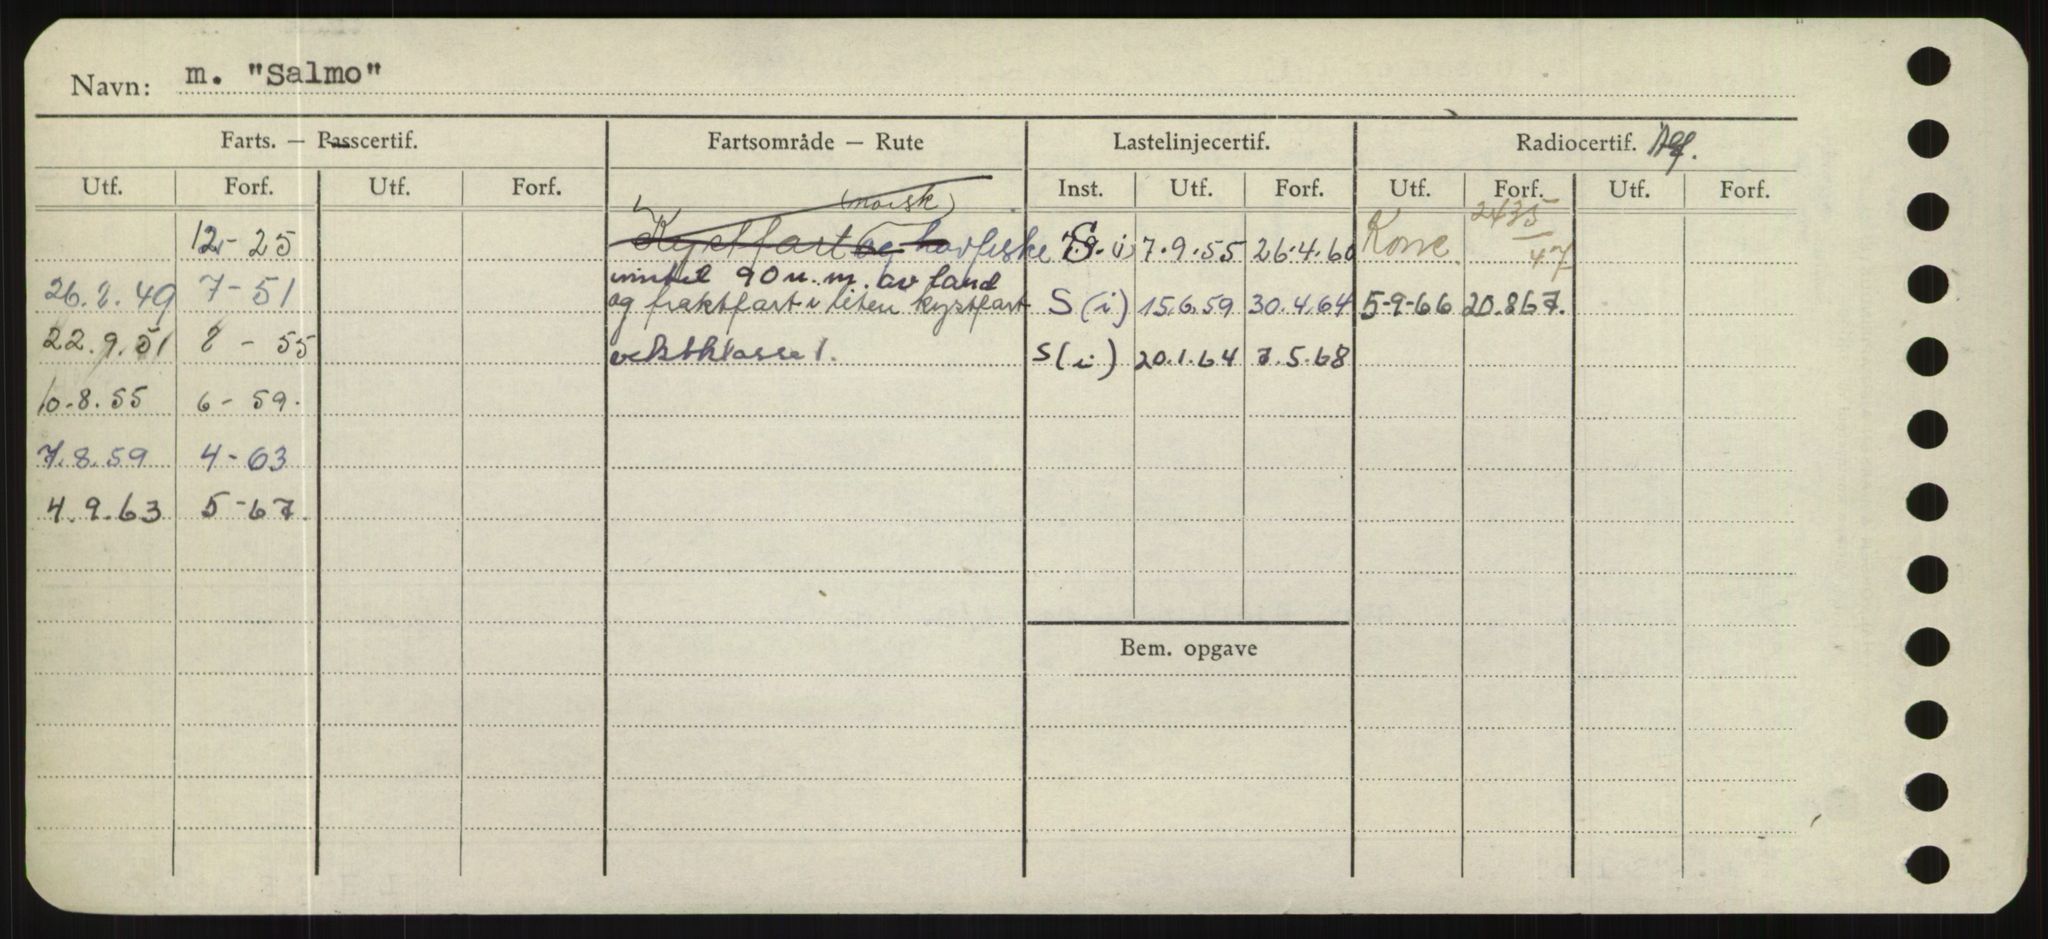 Navn: m. "Salmo"
Farts. — Passcertif. Fartsområde — Rute Lastelinjecertif. Radiocertif.
Utf. Forf. Utf. Forf. Inst. Utf. Forf. Utf. Forf. Utf. Forf.
(norsk) 2435
12-25 Kystfart og havfiske S. i 7.9.55 26.4.60 47
inntil 90 n. m. av land
26.2.49 7-51 og fraktfart i liten kystfart S (i) 15.6.59 30.4.64 5-9-66 20.8.67.
22.9.51 8-55 vektklasse 1. S (i) 20.1.64 7.5.68
10.8.55 6-59.
7.8.59 4-63
4.9.63 5-67.
Bem. opgave